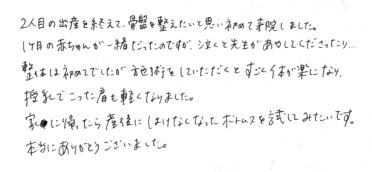 2人目の出産を終えて、骨盤を整えたいと思い初めて来院しました。
1ヶ月の赤ちゃんが一緒だったのですが、泣くと先生があやしてくださったり…
整体は初めてでしたが施術をしていただくとすごく体が楽になり、
授乳でこった肩も軽くなりました。
家に帰ったら産後にはけなくなったボトムスを試してみたいです。
本当にありがとうございました。